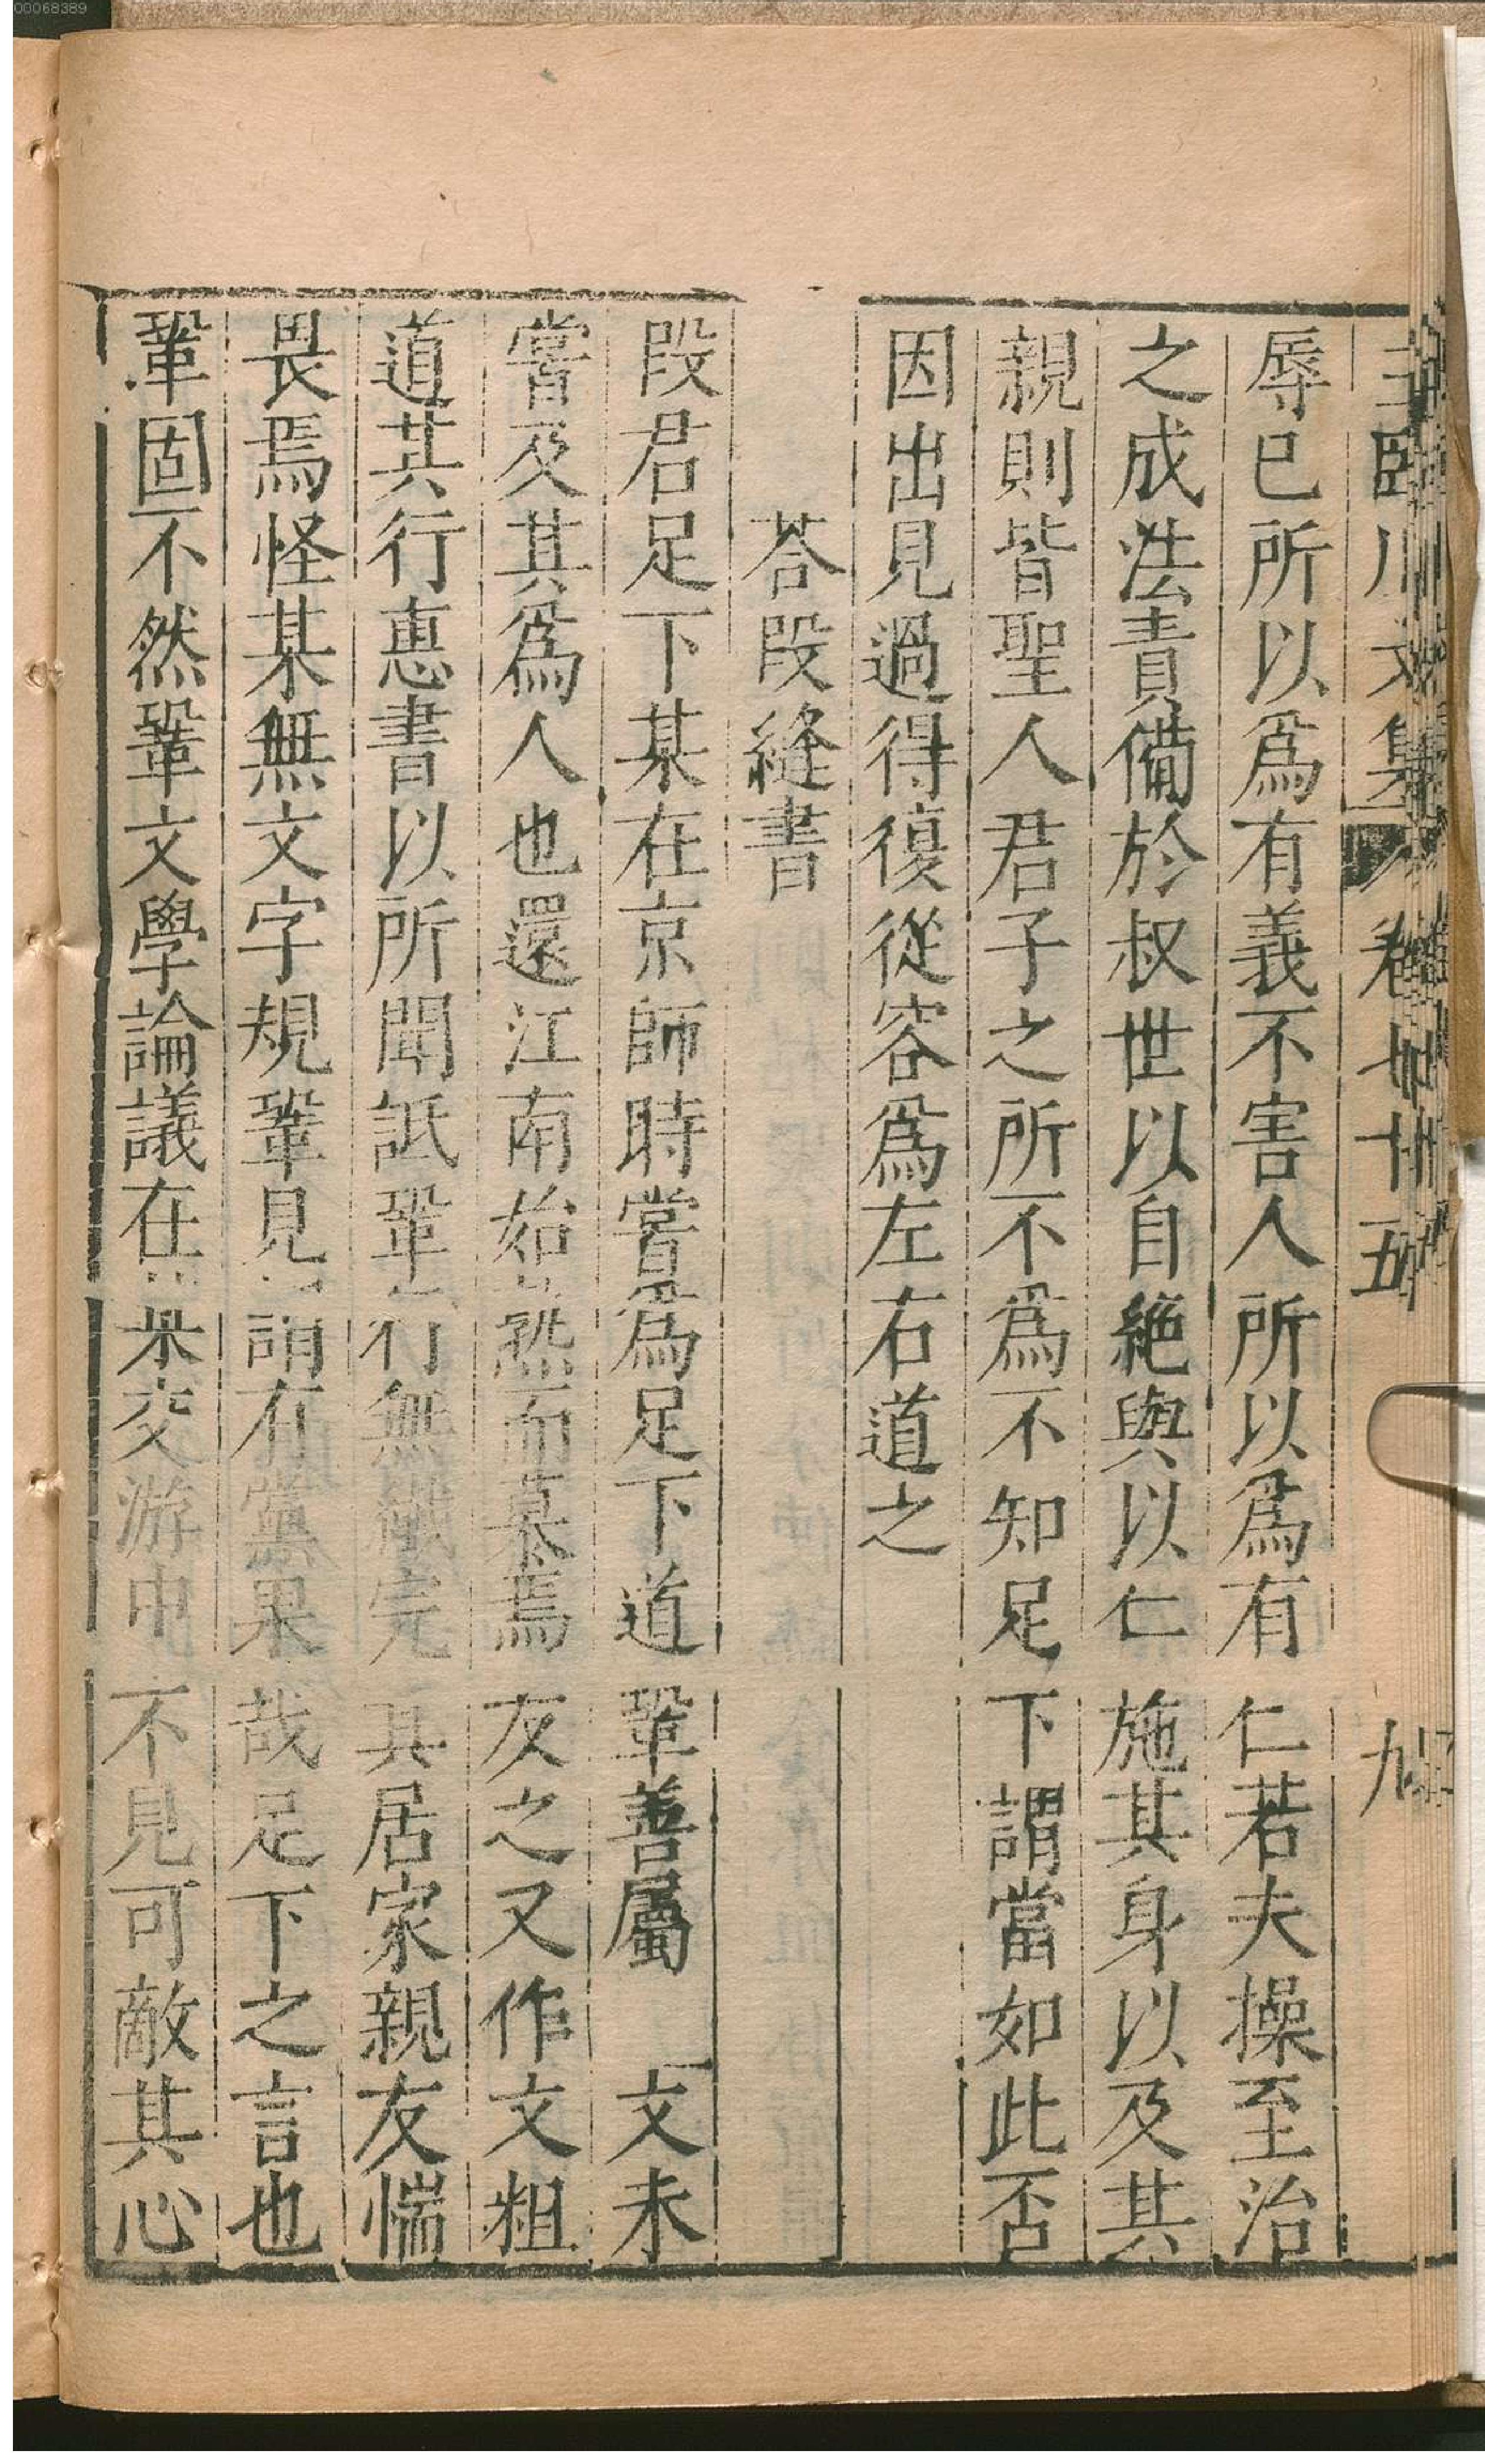 00068389
辱已所以爲有義不害人所以爲有仁若夫操至治
之成法責備於叔世以自絶與以仁施其身以及其
親則皆聖人君子之所不爲不知足下謂當如此否
因出見過得復從容爲左右道之
荅段縫書
段君足下某在京師時嘗爲足下道鞏善屬文未
嘗及其爲人也還江南始熟而慕焉友之又作文粗
道其行惠書以所聞詆鞏行無纎完其居家親友惴
畏焉怪某無文字規鞏見謂有黨果哉足下之言也
鞏固不然鞏文學論議在某交游中不見可敵其心